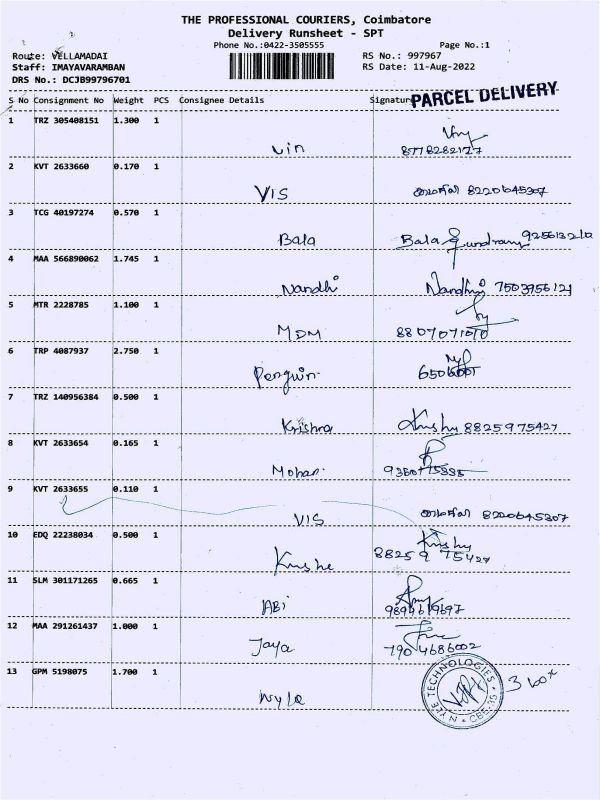 THE PROFESSIONAL COURIERS, Coimbatore
Delivery Runsheet - SPT
Phone No.:0422-3505555 Page No.:1
Route: VELLAMADAI RS No.: 997967
Staff: IMAYAVARAMBAN RS Date: 11-Aug-2022
DRS No.: DCJB99796701
S No Consignment No Weight PCS Consignee Details Signature
PARCEL DELIVERY
1 TRZ 305408151 1.300 1
Vin 8778282127
2 KVT 2633660 0.170 1
VIS 8220645307
3 TCG 40197274 0.570 1
Bala Bala
4 MAA 566890062 1.745 1
Nandhi Nandhi 7503956121
5 MTR 2228785 1.100 1
MDM 8807071010
6 TRP 4087937 2.750 1
Penguin
7 TRZ 140956384 0.500 1
Krishna 8825975427
8 KVT 2633654 0.165 1
Mohan
9 KVT 2633655 0.110 1
VIS 8220645307
10 EDQ 22238034 0.500 1
88259 75427
11 SLM 301171265 0.665 1
ABi 9894619697
12 MAA 291261437 1.000 1
Jaya 7904686002
13 GPM 5198075 1.700 1
Nyle NYLE TECHNOLOGIES CBE-35 3 box